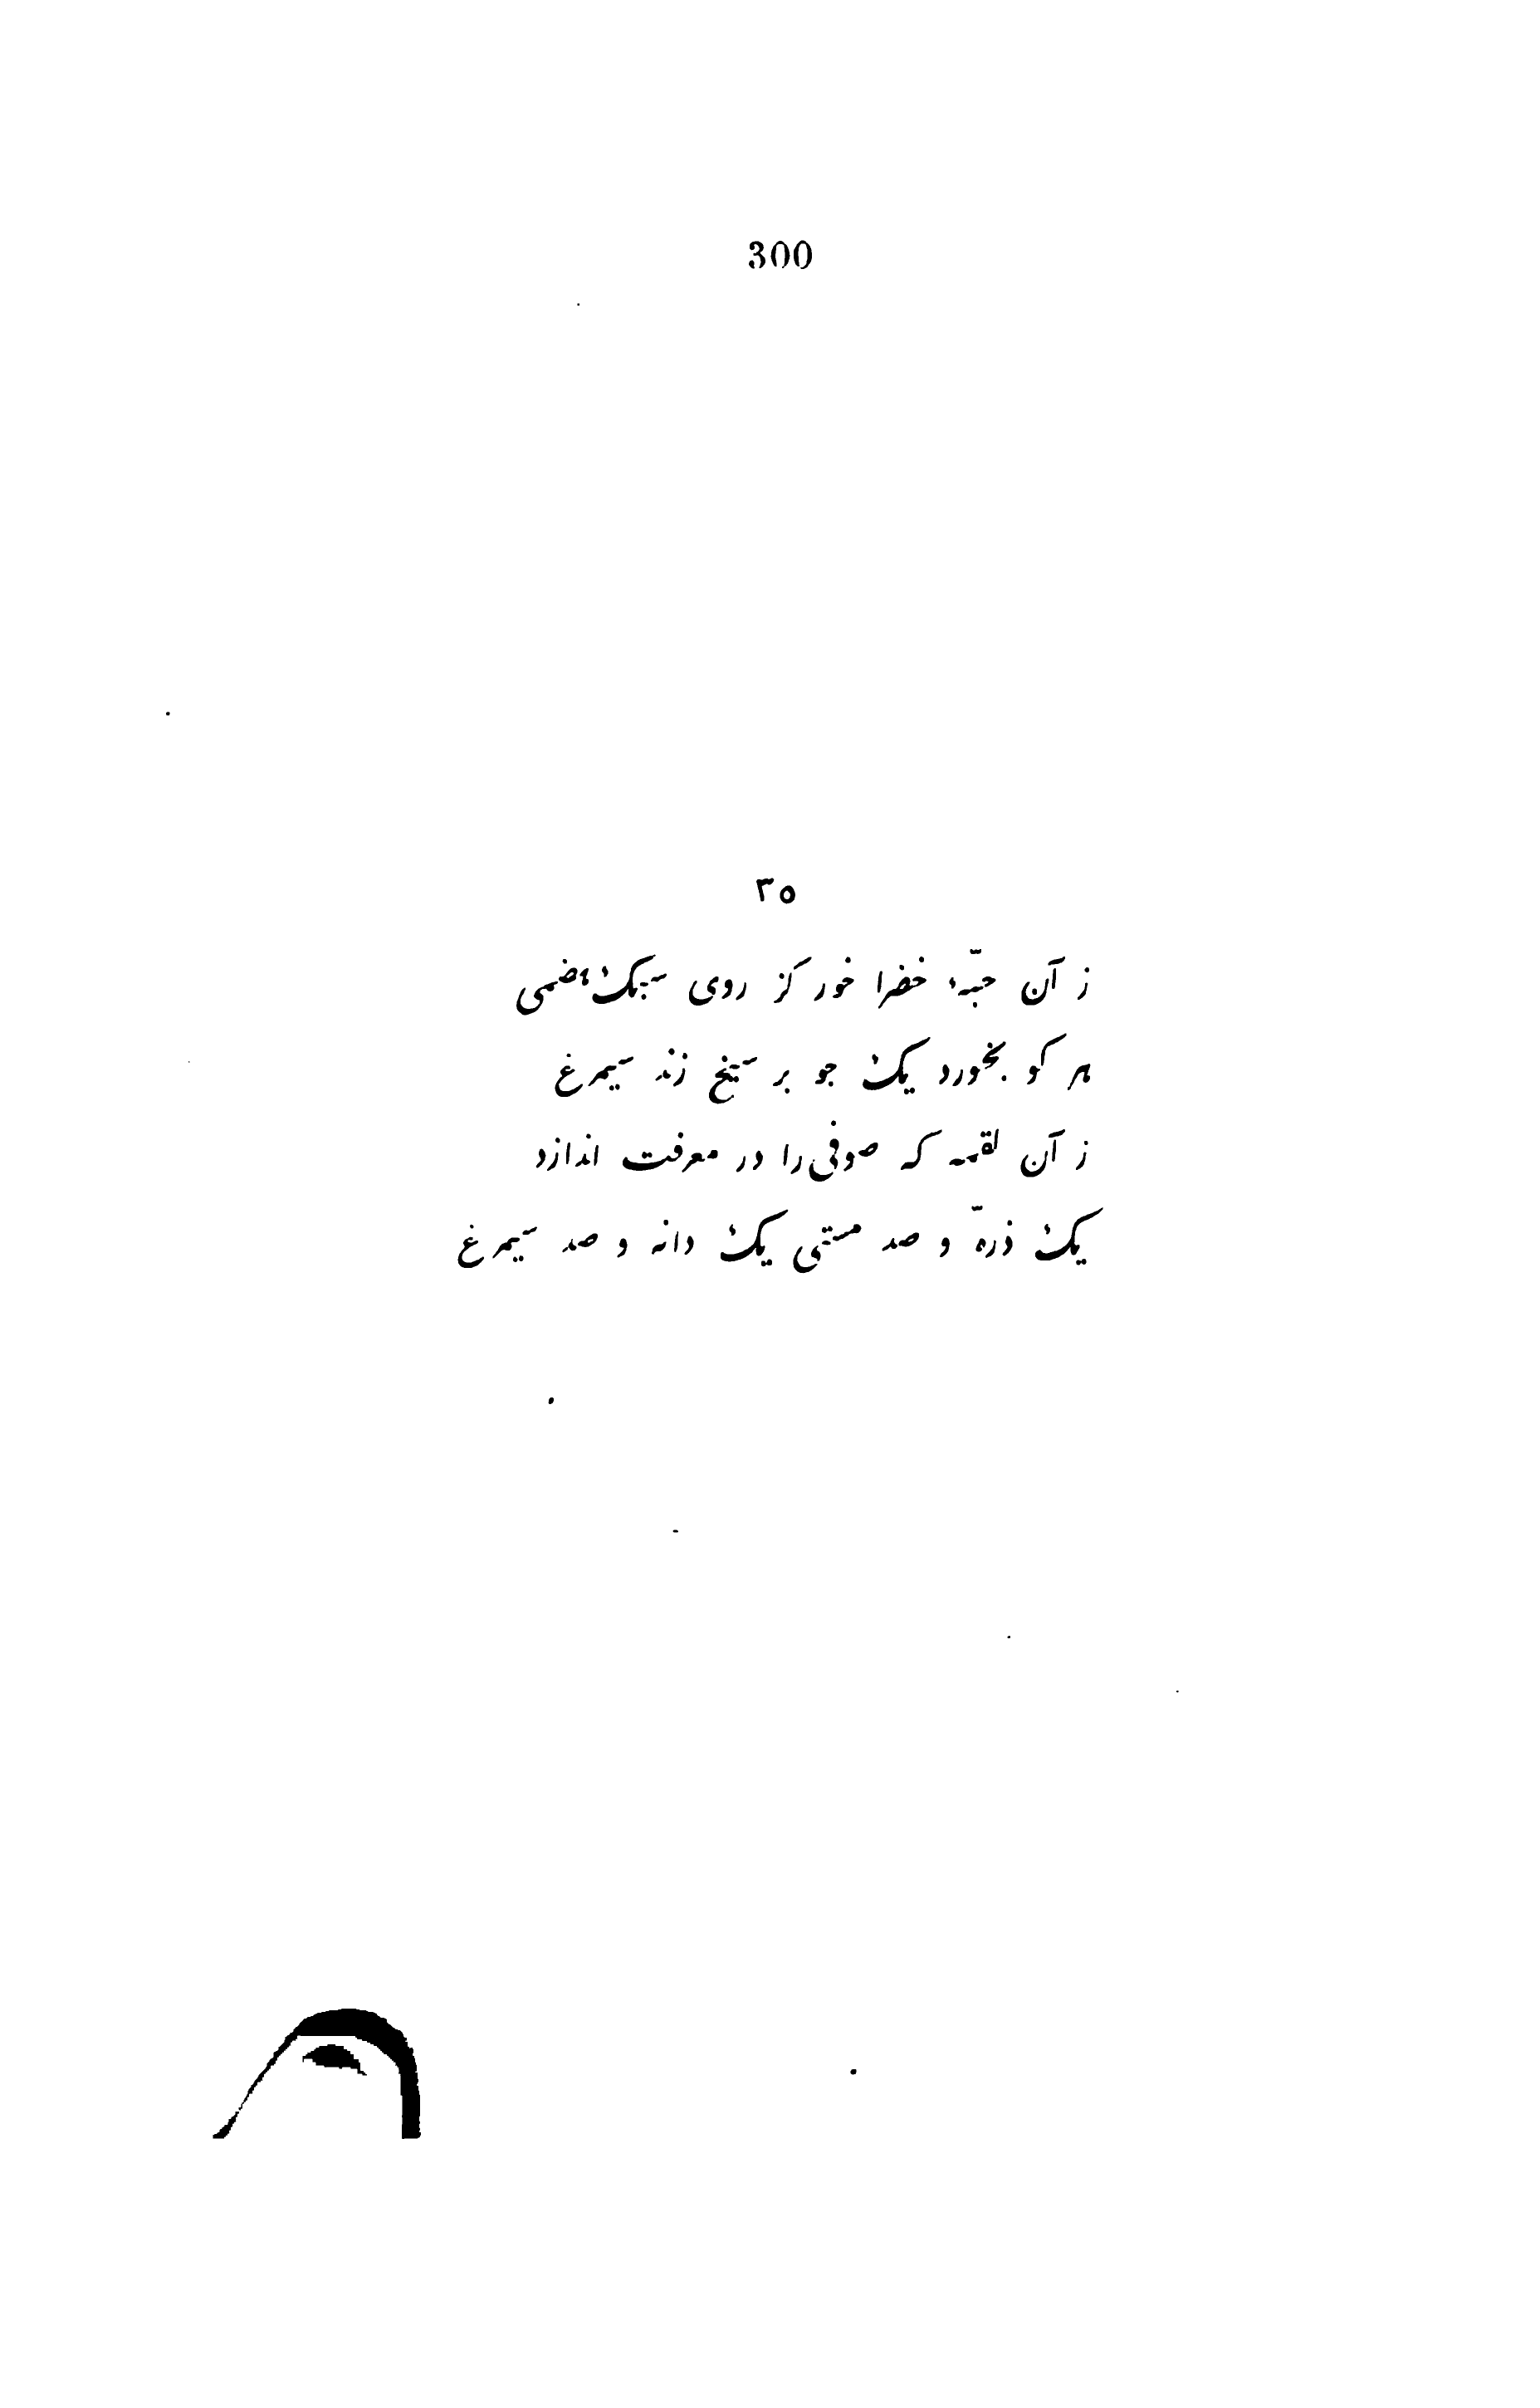 300
٣٥
ز آن حبّهٔ خضرا خور کز روی سبک هضمی
هر کو بخورد یک جو بر سیخ زند سیمرغ
ز آن لقمه که صوفی را در معرفت اندازد
یک ذرّه و صد مستی یک دانه و صد سیمرغ